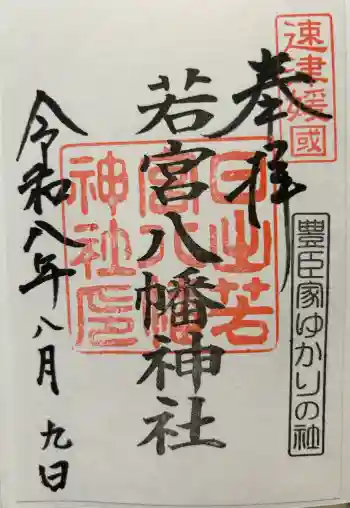 速津媛國
奉拝
豊臣家ゆかりの社
若宮八幡神社
日出若宮八幡神社印
令和八年八月九日